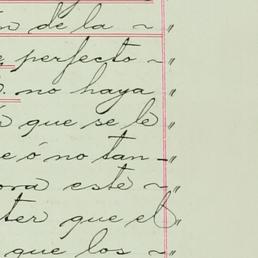 n de la ~ "
perfecto ~ "
. no haya "
que se le "
e ó no tan- "
ora este ~ "
ter que el "
que los ~ "